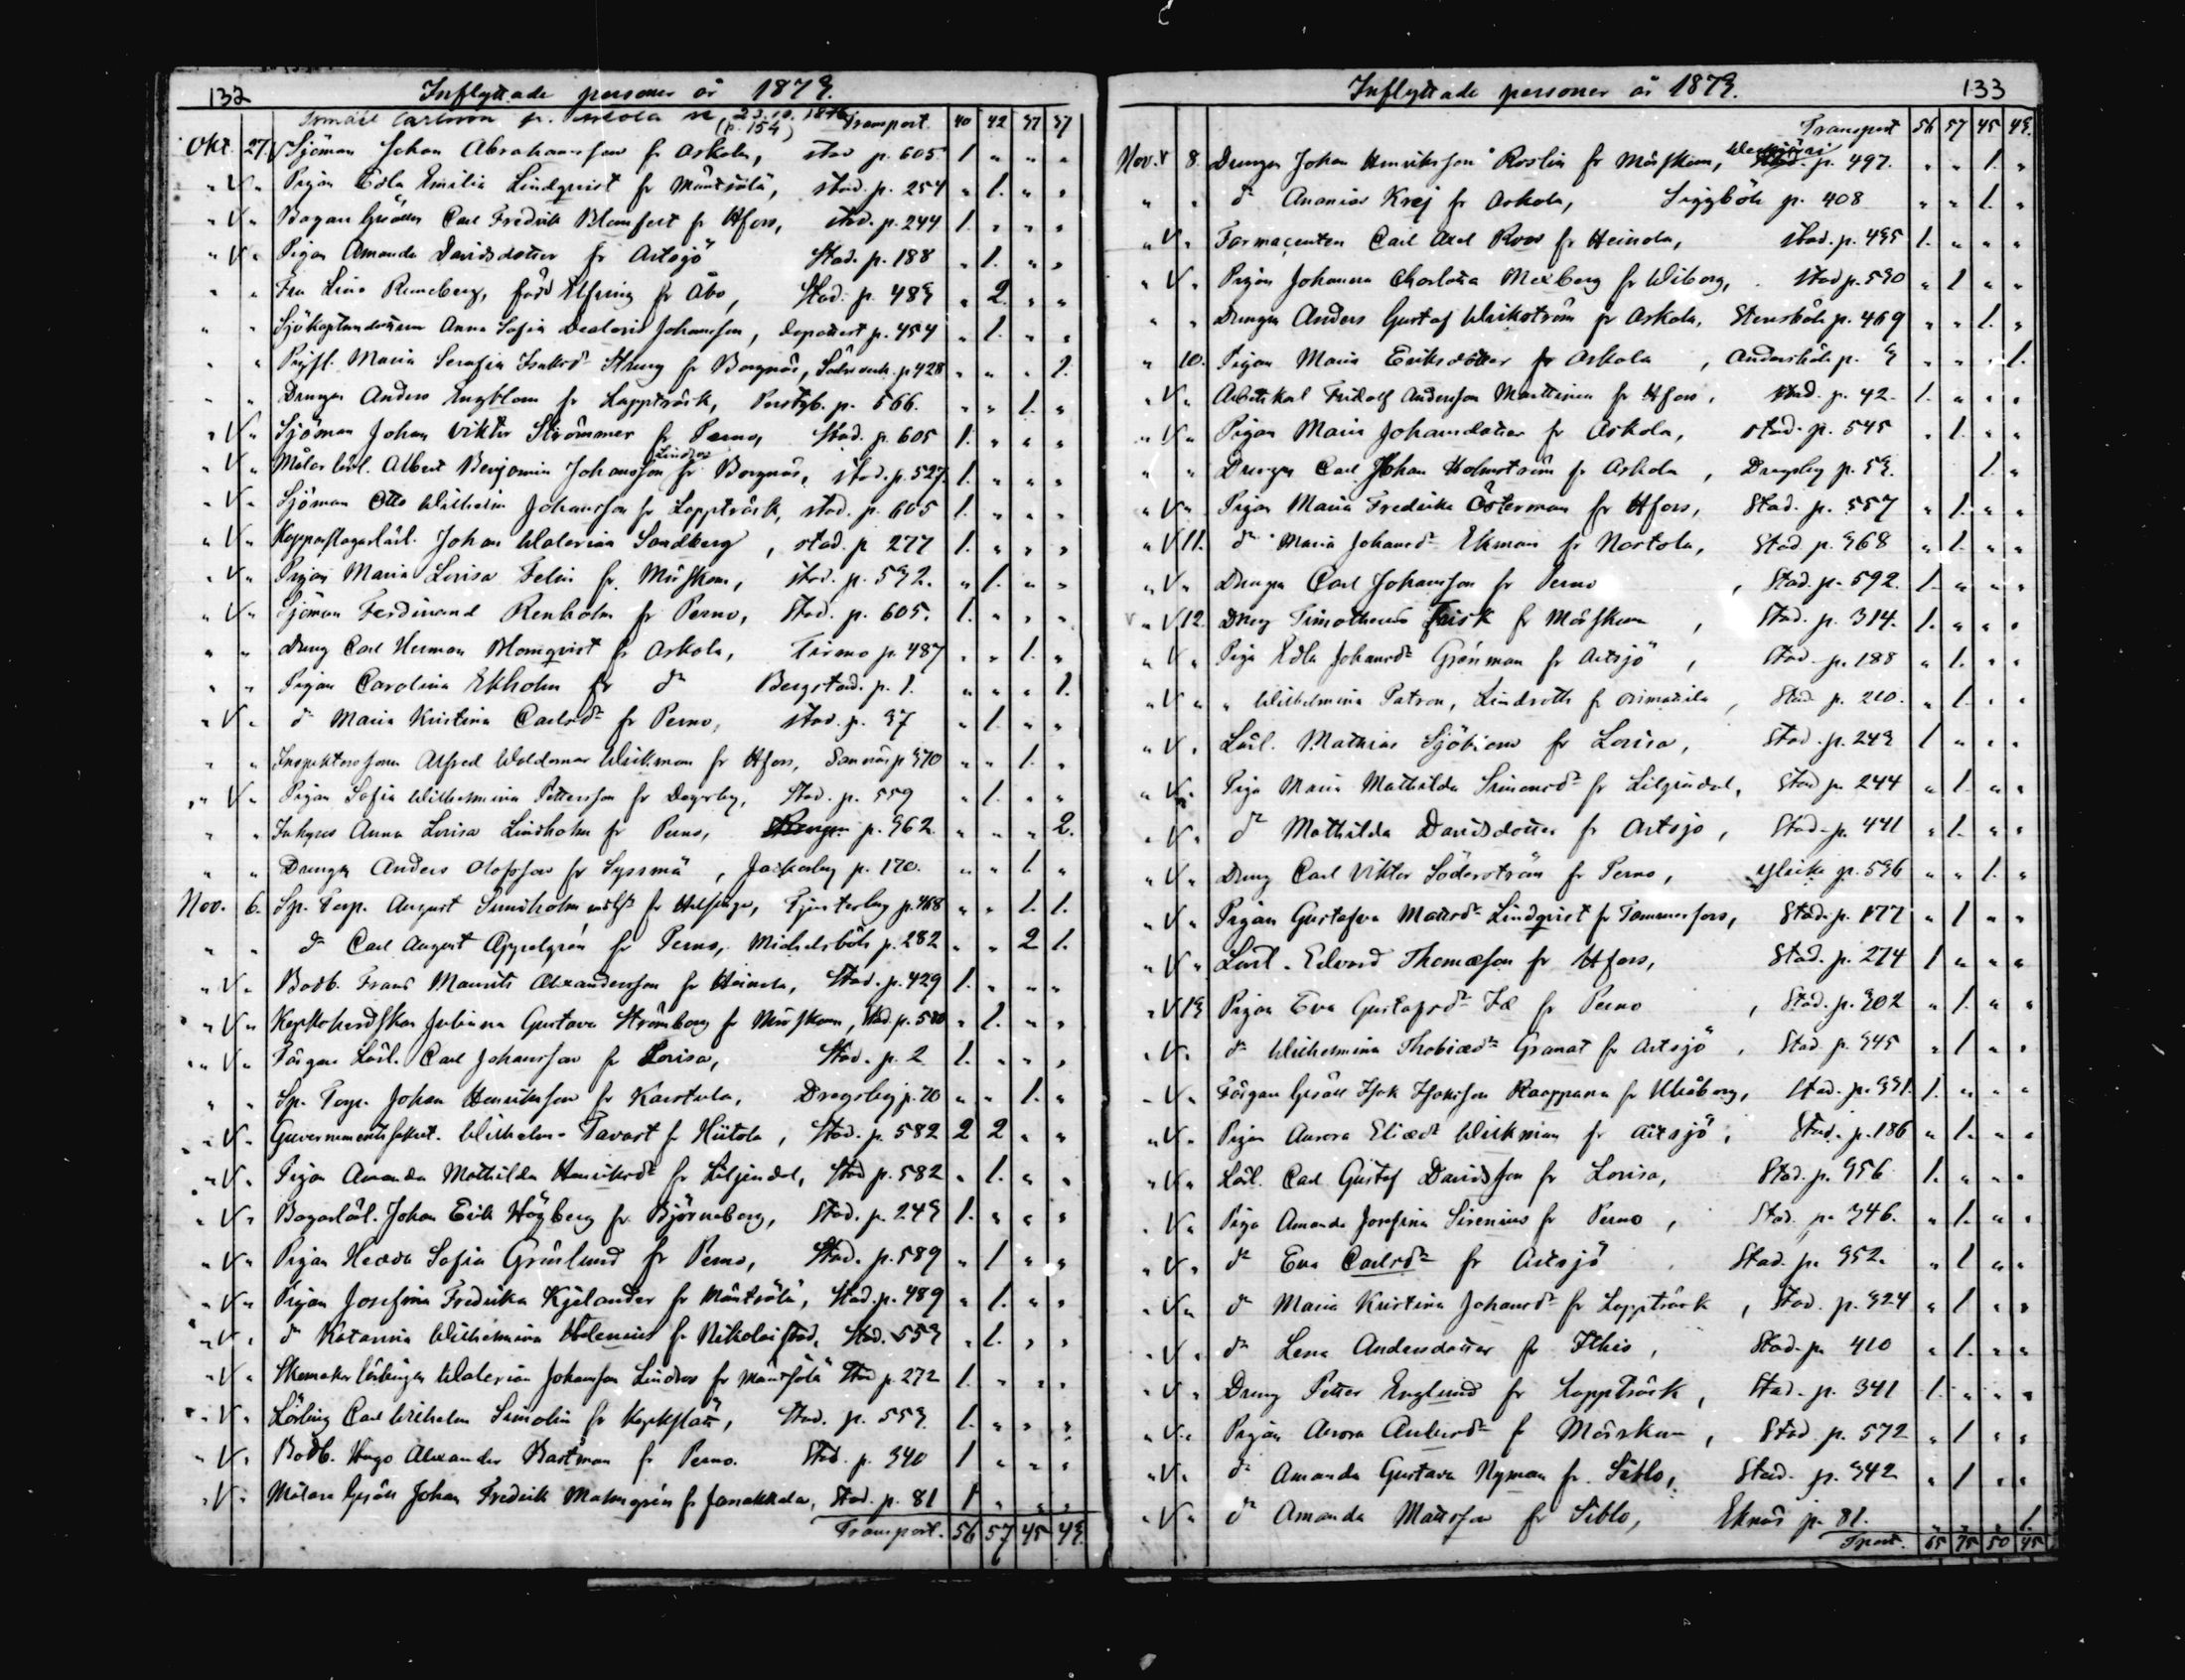 132 Inflyttade personer år 1873.
Carlsson fr. Askola 23.10.1876 (p. 154) Transport. 40 42 37 37
Okt. 27 V Sjöman Johan Abrahamsson fr Askola, stad p. 605. 1 " " "
" V " Pigan Edla Emilia Lindqvist fr Mäntsälä, stad. p. 254 " 1. " "
" V " Bagare Gesällen Carl Fredrik Blomfelt fr Hfors, stad. p. 244 1. " " "
" V " Pigan Amanda Davidsdotter fr Artsjö Stad. p. 188 " 1. " "
" " Fru Lina Runeberg, född Elfving fr Åbo, Stad. p. 483 " 2. " "
" " Anna Sofia Johansson, p. 454 " 1. " "
" " Maria Serafia Isaksdr Strung fr Borgnäs, p 428 " " " 1.
" " Drengen Anders Engblom fr Lappträsk, p. 566. " " 1. "
" V " Sjöman Johan Viktor Strömmer fr Perno, Stad. p. 605 1. " " "
" V " Målar lärl. Albert Benjamin Johansson Lindros fr Borgnäs, stad. p. 527. 1. " " "
" V " Sjöman Otto Wilhelm Johansson fr Lappträsk, stad. p. 605 1. " " "
" V " Kopparslagarlärl. Johan Walerian Sandberg, stad. p 277 1. " " "
" V " Pigan Maria Lovisa Felin fr. Mörskom, stad. p. 532. " 1. " "
" V " Sjöman Ferdinand Renholm fr Perno, Stad. p. 605. 1. " " "
" " Dreng Carl Herman Blomqvist fr Askola, Tirmo p. 487 " " 1. "
" " Pigan Carolina Ekholm fr dº Bergstad. p. 1. " " " 1.
" V " dº Maria Kristina Carlsdr fr Perno, stad. p. 37 " 1. " "
" " Alfred Woldemar Wickman fr Hfors, Sannäs p 370 " " 1. "
" V " Pigan Sofia Wilhelmina Pettersson fr Degerby, Stad. p. 559 " 1. " "
" " Inhyses Anna Lovisa Lindholm fr Perno, p. 362 " " " 2.
" " Drengen Anders Olofsson fr Sysmä, Jackarby p. 170. " " 1 "
Nov. 6. Sp. Torp. August Sundholm fr Helsinge, Tjusterby p. 468 " " 1. 1.
" " dº Carl August Appelgrén fr Perno, Michelsböle p. 282 " " 2 1.
" V " Bodb. Frans Maurits Alexandersson fr Heinola, Stad. p. 429 1. " " "
" V " Juliana Gustava Strömberg fr Mörskom, Stad. p. 580 " 1. " "
" V " Färgare Lärl. Carl Johansson fr Lovisa, Stad. p. 2 1. " " "
" " Sp. Torp. Johan Henriksson fr Karstula, Dregsby p. 70 " " 1. "
" V " Guvernementssekret. Wilhelm Tavast fr Hiitola, Stad. p. 582 2 2 " "
" V " Pigan Amanda Mathilda Henriksdr fr Liljendal, Stad p. 582 " 1. " "
" V " Bagarlärl. Johan Erik Högberg fr. Björneborg, Stad. p. 243 1. " " "
" V " Pigan Hedda Sofia Grönlund fr Perno, Stad. p. 589 " 1 " "
" V " Pigan Josefina Fredrika Kjelander fr Mäntsälä, Stad. p. 489 " 1. " "
" V " dº Katarina Wilhelmina Helenius fr Nikolaistad, Stad. 553 " 1. " "
" V " Skomakar lärlingen Walerian Johansson Lindros fr Mäntsälä Stad p. 272 1. " " "
" V " Lärling Carl Wilhelm Simolin fr, Stad. p. 553. 1. " " "
" V " Bodb. Hugo Alexander Bastman fr Perno. Stad. p. 340 1 " " "
" V " Målare Gesäll Johan Fredrik Malmgrén fr Janakkala, Stad. p. 81 1 " " "
Transport. 56 57 45 43.
Inflyttade personer år 1873. 133
Transport 56 57 45 43.
Nov. V 8. Drengen Johan Henriksson Roslin fr Mörskom, p. 497. " " 1. "
" " dº Ananias Krej fr Askola, Siggböle p. 408 " " 1. "
" V " Farmaceuten Carl Axel Roos fr Heinola, stad. p. 495 1. " " "
" V " Pigan Johanna Charlotta Mexberg fr Wiborg, stad p. 530 " 1 " "
" " Drengen Anders Gustaf Wickström fr Askola, Stensböle p. 469 " " 1. "
" 10. Pigan Maria Eriksdotter fr Askola, Andersböle p. 3 " " " 1.
" V " Arbetskarl Fridolf Andersson Marttinen fr Hfors, stad. p. 42. 1. " " "
" V " Pigan Maria Johansdotter fr Askola, stad. p. 545 " 1. " "
" " Drengen Carl Johan Holmström fr Askola, Dregsby p. 53. 1. "
" V " Pigan Maria Fredrika Österman fr Hfors, Stad. p. 557 " 1. " "
" V 11. dº Maria Johansdr Ekman fr Nastola, Stad p. 368 " 1. " "
" V " Drengen Carl Johansson fr Perno, Stad. p. 592. 1. " " "
V " V 12 Dreng Timotheus Frisk fr Mörskom, Stad. p. 314. 1. " " "
" V " Piga Edla Johansdr Grönman fr Artsjö, Stad. p. 188 " 1. " "
" V " " Wilhelmina Patron, Lindroth fr Orimattila, Stad p. 210. " 1. " "
" V " Lärl. Mathias Sjöblom fr Lovisa, Stad. p. 243 1 " " "
" V " Piga Maria Mathilda Simonsdr fr Liljendal, Stad p. 244 " 1. " "
" V " dº Mathilda Davidsdotter fr Artsjö, Stad. p. 441 " 1. " "
" V " Dreng Carl Viktor Söderström fr Perno, Ylike p. 536 " " 1. "
" V " Pigan Gustafva Mattsdr Lindqvist fr Tammerfors, Stad. p. 177 " 1 " "
" V " Lärl. Edvard Thomasson fr Hfors, Stad. p. 274 1 " " "
" V 13 Pigan Eva Gustafsdr fr Perno, Stad. p. 302 " 1. " "
" V " dº Wilhelmina Thobiasdr Granat fr Artsjö, Stad p. 345 " 1 " "
" V " Färgare Gesäll Isak Isaksson Raappana fr Uleåborg, Stad. p. 331. 1. " " "
" V " Pigan Aurora Eliasdr Wickman fr Artsjö, Stad. p. 186 " 1. " "
" V " Lärl. Carl Gustaf Davidsson fr Lovisa, Stad. p. 356 1. " " "
" V " Piga Amanda Josefina Sirenius fr Perno, Stad. p. 346. " 1. " "
" V " dº Eva Carlsdr fr Artsjö Stad. p. 352. " 1 " "
" V " dº Maria Kristina Johansdr fr Lappträsk, Stad. p. 324 " 1 " "
" V " dº Lena Andersdotter fr Ithis, Stad. p. 410 " 1. " "
" V " Dreng Petter Englund fr Lappträsk, Stad. p. 341 1. " " "
" V " Pigan Aurora fr Mörskom, Stad p. 572 " 1 " "
" V " dº Amanda Gustava Nyman fr. Sibbo, Stad. p. 342 " 1 " "
" V " dº Amanda Mattsson fr Sibbo, Eknäs p. 81. " " " 1.
Tpart. 65 75 50 45